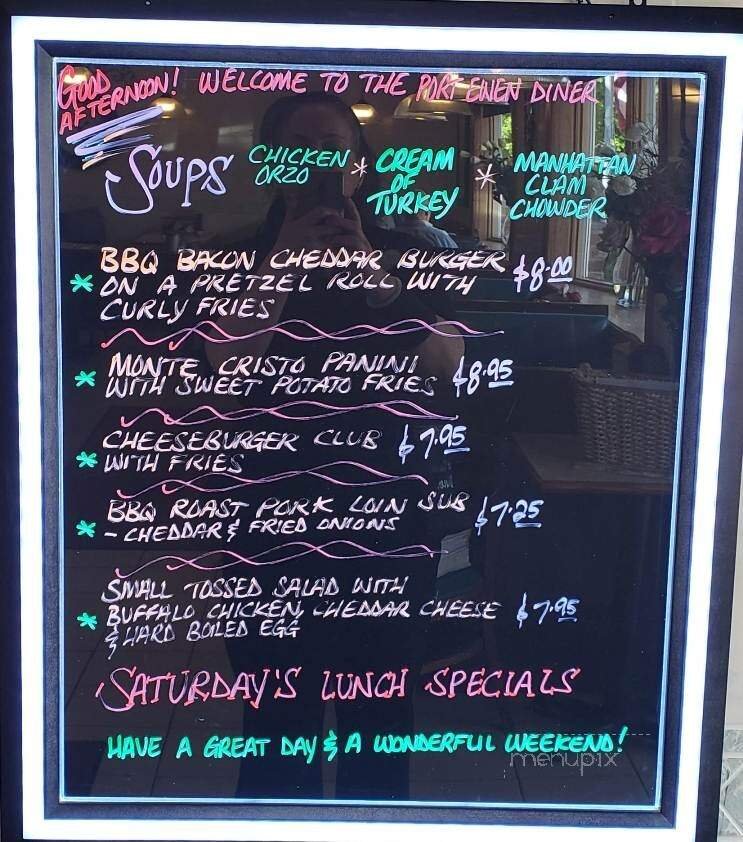 GOOD AFTERNOON! WELCOME TO THE PORT EWEN DINER
SOUPS CHICKEN ORZO * CREAM OF TURKEY * MANHATTAN CLAM CHOWDER
BBQ BACON CHEDDAR BURGER
* ON A PRETZEL ROLL WITH $8.00
CURLY FRIES
MONTE CRISTO PANINI
* WITH SWEET POTATO FRIES $8.95
CHEESEBURGER CLUB $7.95
* WITH FRIES
BBQ ROAST PORK LOIN SUB $7.25
* - CHEDDAR & FRIED ONIONS
SMALL TOSSED SALAD WITH
* BUFFALO CHICKEN, CHEDDAR CHEESE $7.95
& HARD BOILED EGG
SATURDAY'S LUNCH SPECIALS
HAVE A GREAT DAY & A WONDERFUL WEEKEND!
menupix